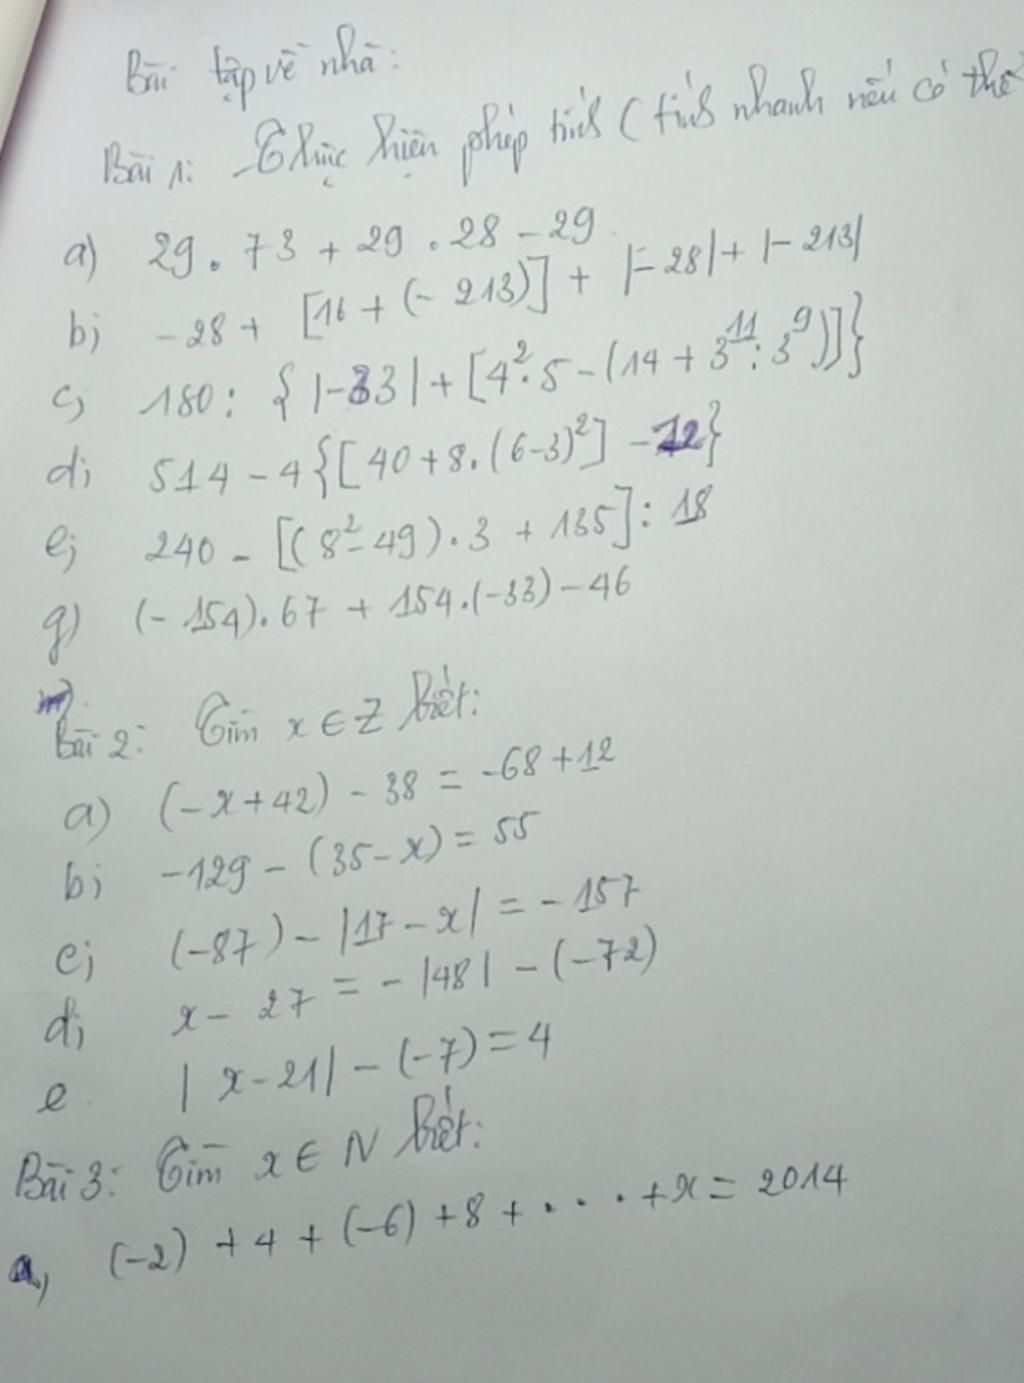 Bài tập về nhà:
Bài 1: Thực hiện phép tính (tính nhanh nếu có thể
a) 29 . 73 + 29 . 28 - 29
b) -28 + [16 + (- 213)] + |-28| + |-213|
c) 180 : { |-33| + [4².5 - (14 + 3¹¹ : 3⁹)]}
d) 514 - 4{[40 + 8.(6-3)²] - 12}
e) 240 - [(8² - 49) . 3 + 135] : 18
g) (- 154). 67 + 154.(-33) - 46
Bài 2: Tìm x ∈ Z biết:
a) (-x + 42) - 38 = -68 + 12
b) -129 - (35 - x) = 55
c) (-87) - |17 - x| = - 157
d) x - 27 = - |48| - (-72)
e | x - 21| - (-7) = 4
Bài 3: Tìm x ∈ N biết:
a) (-2) + 4 + (-6) + 8 + . . . + x = 2014